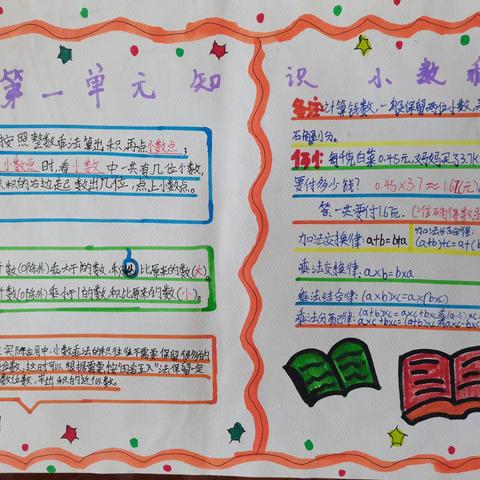 第一单元 知识 小数乘
按照整数乘法算出积,再点小数点;
小数点时,看小数中一共有几位小数,
从积的右边起数出几位,点上小数点。
数(0除外)乘大于1的数,积比原来的数(大)。
数(0除外)乘小于1的数,积比原来的数(小)。
实际应用中,小数乘法的积往往不需要保留很多的
位数,这时可以根据需要按"四舍五入"法保留一定
数位数,求出积的近似数。
备注:计算钱数,一般保留两位小数,
到分。
例1:每千克白菜0.45元,妈妈买了3.7K
要付多少钱? 0.45×3.7≈1.67(元)
答:一共要付1.67元。
加法交换律:a+b=b+a
加法结合律:
(a+b)+c=a+(b
乘法交换律:a×b=b×a
乘法结合律:(a×b)×c=a×(b×c)
乘法分配律:(a+b)×c=a×c+b×c